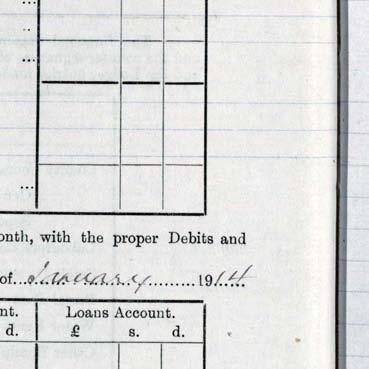 ...
..
...
...
onth, with the proper Debits and
of...January...........1914.....
nt. Loans Account.
d. £ s. d.